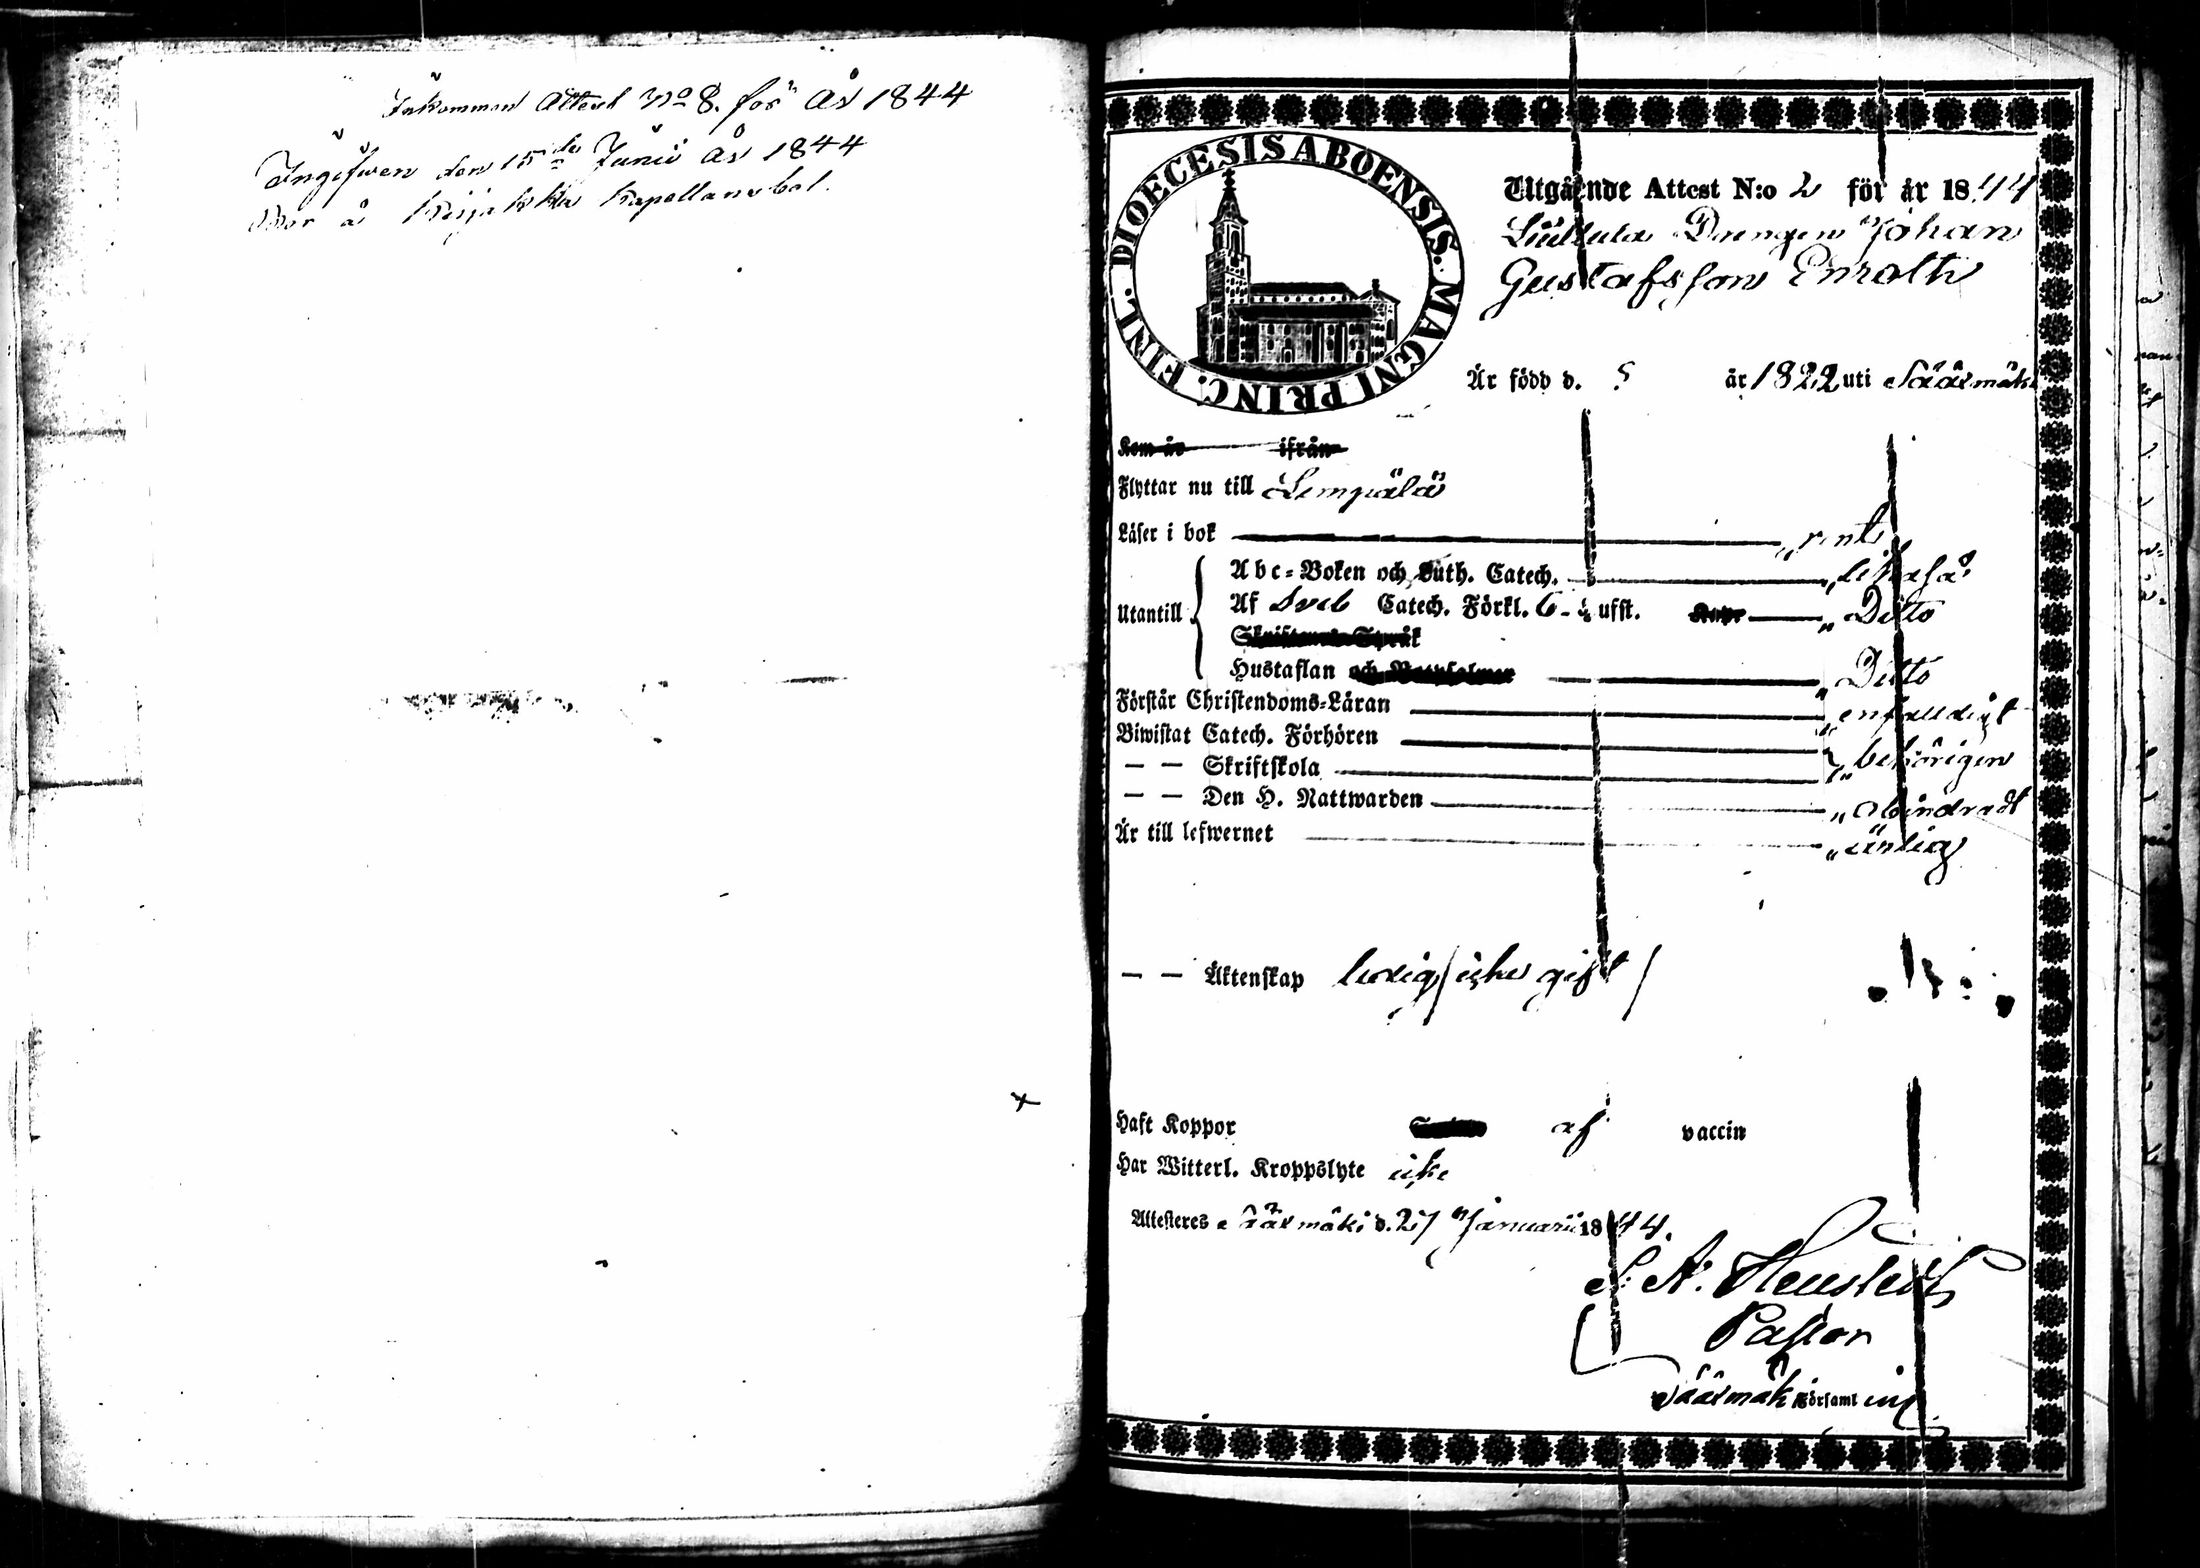 Inkommen Attest No 8. för År 1844
Ingifwen den 15de Junii År 1844
Bor å Kapellansbol.
DIOECESIS ABOENSIS. MAGNI PRINC. FINL.
Utgående Attest N:o 2 för år 1844
Drengen Johan
Gustafsson Enrolth
Är född d. ? år 1822 uti Sääxmäki
Kom år ifrån
Flyttar nu till Lempälä
Läser i bok „rent
Utantill
Abc-Boken och Luth. Catech. „likaså
Af Sveb Catech. Förkl. 6- ufst. „Ditto
Skriftenes Språk
Hustaflan och Botpsalmer „Ditto
Förstår Christendoms-Läran „enfaldigt
Biwistat Catech. Förhören
— — Skriftskola „behörigen
— — Den H. Nattwarden „obindradt
Är till lefwernet „ärlig
— — Äktenskap ledig/icke gift/
Haft Koppor af vaccin
Har Witterl. Kroppslyte icke
Attesteres Sääxmäki d. 27 Januarii 1844.
Pastor
Sääxmäki Församling